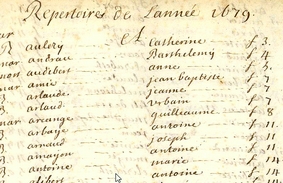 Repertoire de Lannée 1679.
mar
R aulery et Catherine f 3.
mar andrau Barthelemy f 4.
mort audibert anne f 5.
mar amic jean baptiste f 7
B arlaud jeanne f 7
B arlaude Vrbain f 7
mar arcange guilleaume f 8
B arbaye antoine f 11
B arnaud joseph f 11
B amayon antoine f 11
B antoine marie f 14
alibert antoine f 14